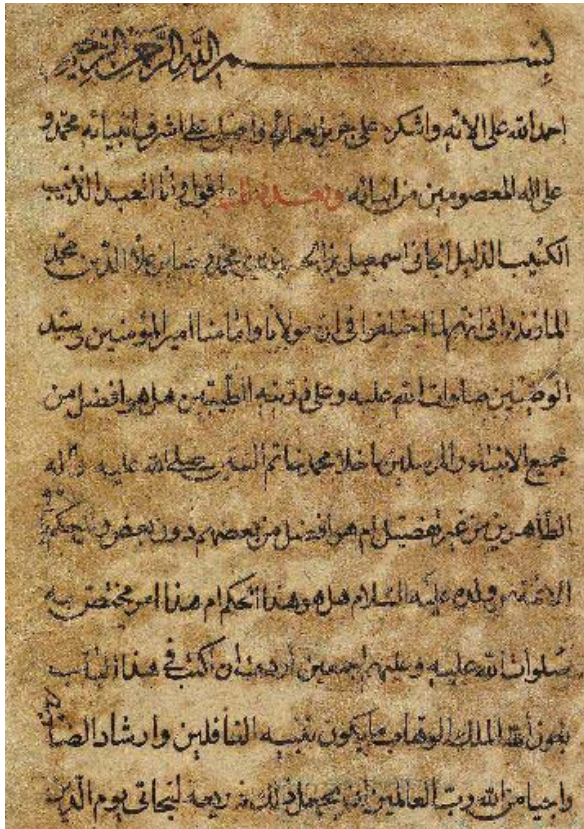 بسم الله الرحمن الرحيم
احمد الله على الائه واشكره على نعمائه واصلي على اشرف انبيائه محمد و
على اله المعصومين من ابنائه وبعد اقول وانا العبد المذنب
الكئيب الذليل الجاني اسمعيل بن الحسين بن محمد رضا بن علاء الدين محمد
المازندراني انهم لما اختلفوا في ان مولانا وامامنا امير المؤمنين وسيد
الوصيين صلوات الله عليه وعلى ذريته الطيبين هل هو افضل من
جميع الانبياء والمرسلين ما خلا محمد خاتم النبيين صلى الله عليه واله
الطاهرين من غير تفضيل ام هو افضل من بعضهم دون بعض والحكم
الائمة من ولده عليه السلام هل هو هذا الحكم ام هذا امر مختص به
صلوات الله عليه وعليهم اجمعين اردت ان اكتب في هذا الباب
بعون الله الملك الوهاب ما يكون تنبيه الغافلين وارشاد
راجيا من الله رب العالمين ان يجعل ذلك ذريعه لنجاتي يوم الدين